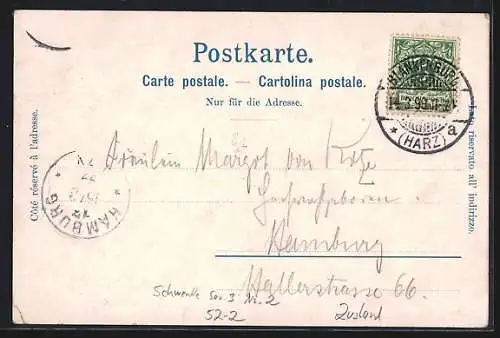 Postkarte.
Carte postale. — Cartolina postale.
Nur für die Adresse.
Côté réservé à l'adresse.
Lato riservato all' indirizzo.
BLANKENBURG
(HARZ) a
HAMBURG
Fräulein Margot von
Hamburg
Hallerstrasse 66.
Schwenke Ser. 3 Nr. 2
52-2
Zustand